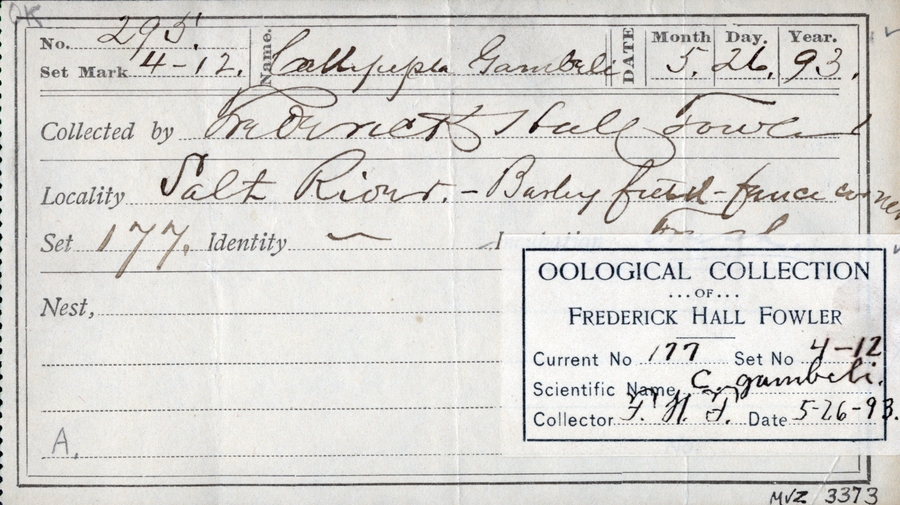 OK
No. 295. Name. Callipepla Gambeli DATE Month Day. Year.
Set Mark 4-12. 5. 26. 93.
Collected by Frederick Hall Fowler
Locality Salt River. - Barley field - fence corner
Set 177. Identity — Incubation Fresh
OOLOGICAL COLLECTION
...OF...
FREDERICK HALL FOWLER
Nest,
Current No 177 Set No 4-12
Scientific Name C. gambeli.
Collector F. H. F. Date 5-26-93.
A.
MVZ 3373